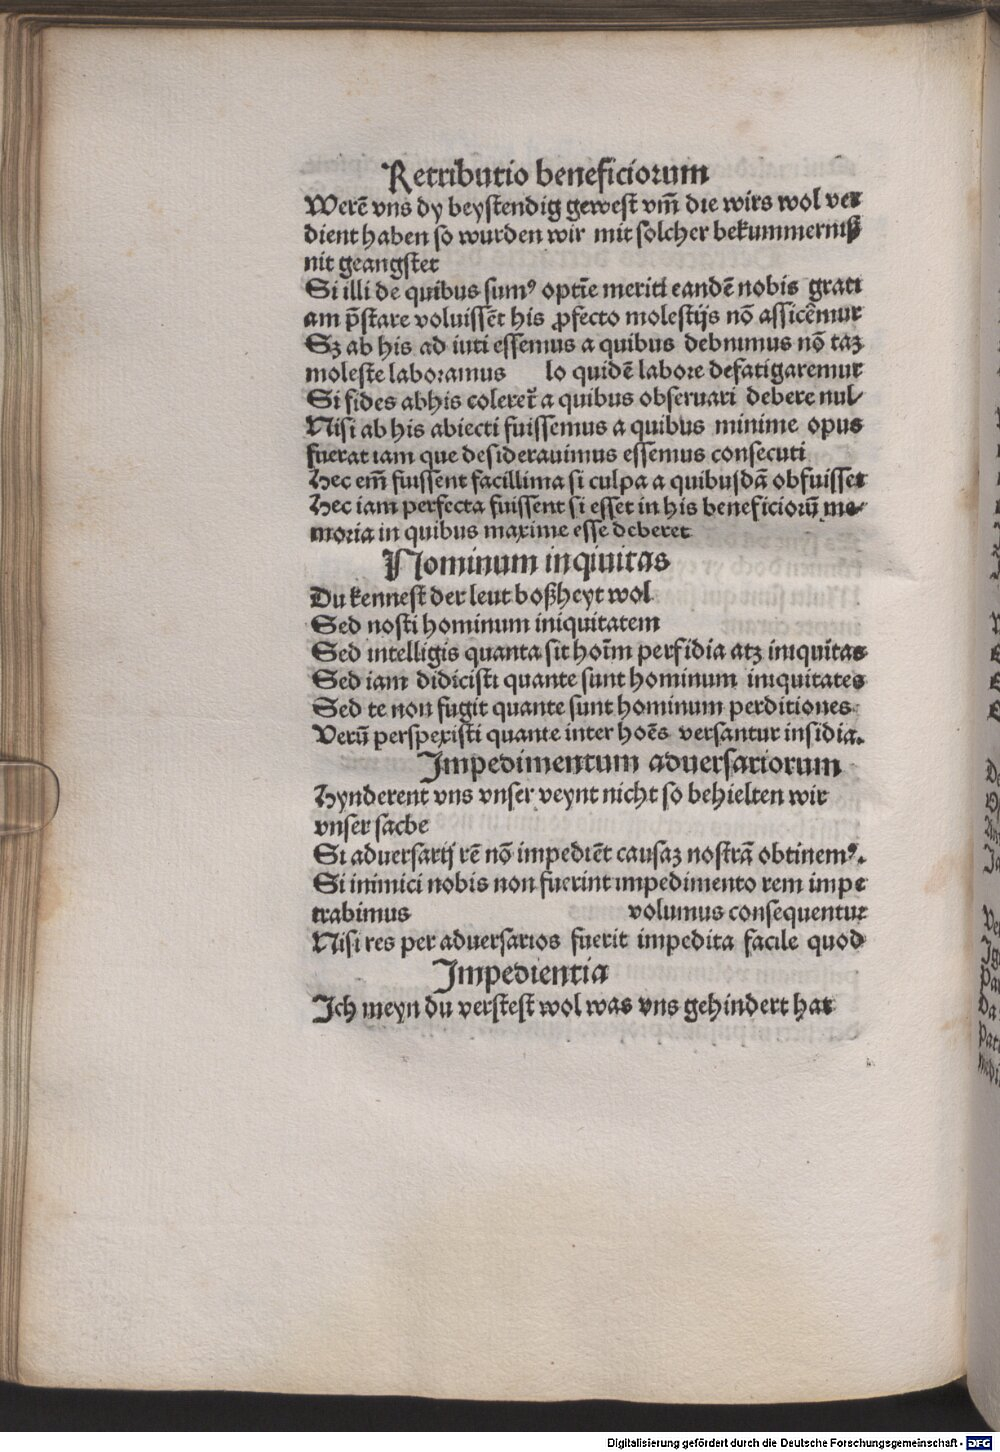 Retributio beneficiorum
Werē vns dy beystendig gewest vm̄ die wirs wol ver
dient haben so wurden wir mit solcher bekummerniß
nit geangstet
Si illi de quibus sumꝰ optīe meriti eandē nobis grati
am p̄stare voluissēt his ꝓfecto molestijs nō afficēmur
Sꝫ ab his ad iuti essemus a quibus debuimus nō taꝫ
moleste laboramus lo quidē labore defatigaremur
Si fides abhis coleret̄ a quibus obseruari debere nul⸗
Nisi ab his abiecti fuissemus a quibus minime opus
fuerat iam que desiderauimus essemus consecuti
Hec em̄ fuissent facillima si culpa a quibusdā obfuisset
Hec iam perfecta fuissent si esset in his beneficiorū me⸗
moria in quibus maxime esse deberet
Nominum inqiuitas
Du kennest der leut boßheyt wol
Sed nosti hominum iniquitatem
Sed intelligis quanta sit hoīm perfidia atꝫ iniquitas
Sed iam didicisti quante sunt hominum iniquitates
Sed te non fugit quante sunt hominum perditiones
Verū perspexisti quante inter hoēs versantur insidia.
Impedimentum aduersariorum
Hynderent vns vnser veynt nicht so behielten wir
vnser sache
Si aduersarij rē nō impediēt causaꝫ nostrā obtinemꝰ.
Si inimici nobis non fuerint impedimento rem impe
trabimus volumus consequentur
Nisi res per aduersarios fuerit impedita facile quod
Impedientia
Ich meyn du verstest wol was vns gehindert hat
Digitalisierung gefördert durch die Deutsche Forschungsgemeinschaft - DFG